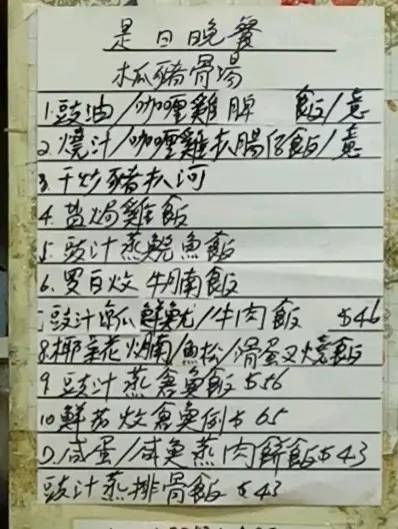 是日晚餐
木瓜豬骨湯
1.豉油/咖喱雞脾 飯/意
2.燒汁/咖喱雞扒腸仔飯/意
3.干炒豬扒河
4.盐焗雞飯
5.豉汁蒸鯇魚飯
6.罗白炆牛腩飯
豉汁凉瓜鮮魷/牛肉飯 $46
8.椰菜花火腩/魚松/滑蛋叉燒飯
9.豉汁蒸倉魚飯 $56
10.鮮茄炆倉魚例$65
D.咸蛋/咸魚蒸肉餅飯$43
豉汁蒸排骨飯 $43